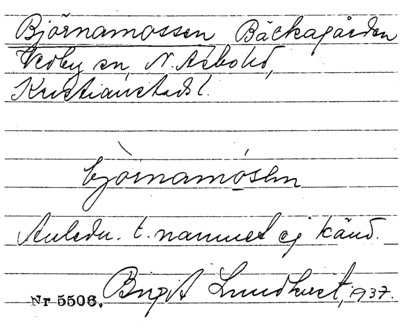 Björnamossen Bäckagården
Vedby sn N. Åsbo hd,
Kristianstads l.
björnamósen
Anledn. t. namnet ej känd.
Nr 5506. Birgit Lundkvist, 1937.